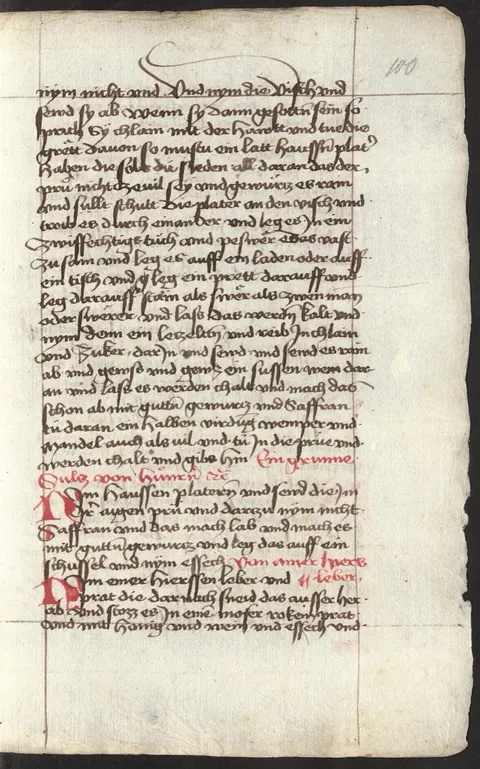 100
nym nicht vnd. Vnd nym die visch vnd
send sy ab wenn sy dann gesotn sein so
prath sy chlain mit der hantt vnd tue die
grett dauon so mustu ein latt haussn plat
haben die solt du sieden all daran das der
prü nicht zeuil sey vnd gewürtz es rain
vnd süllt schütt die plater an den visch vnd
treib es durch einander vnd leg es In ein
zwiffechtigs tuch vnd peswer vast
zu sam vnd leg es auff ein laden oder auff
ein tisch vnd leg ein prett darauff vnd
leg darauff stain als swer als zwen man
oder swerer vnd lass das werdn kalt vnd
nym denn ein lezeltn vnd reib In chlain
vnd zuker dar In vnd send vnd send es rain
ab vnd gewss vnd gewz ein sussen wein dar
an vnd lass es werden chalt vnd mach das
schon ab mit guttn gewurtz vnd Saffran
tu daran ein halben virdung wenper vnd
mandel auch als uil vnd tu In die prüe vnd
werden chalt vnd gibs hin Ein grunne
Sulz von hünrn etc
Nym haussen platern vnd send die In
Ir aygen prü vnd dartzu nym nicht
Saffran vnd das mach lab vnd mach es
mit guttn gewurtz vnd leg das auff ein
schüssel vnd nym essech Von ainer hierss
Nym einer hierssen leber vnd leber
prat die darnach sneid das ausser her
ab vnd stozz es In eine mosser roken prat
vnd mit honig vnd wein vnd essech vnd